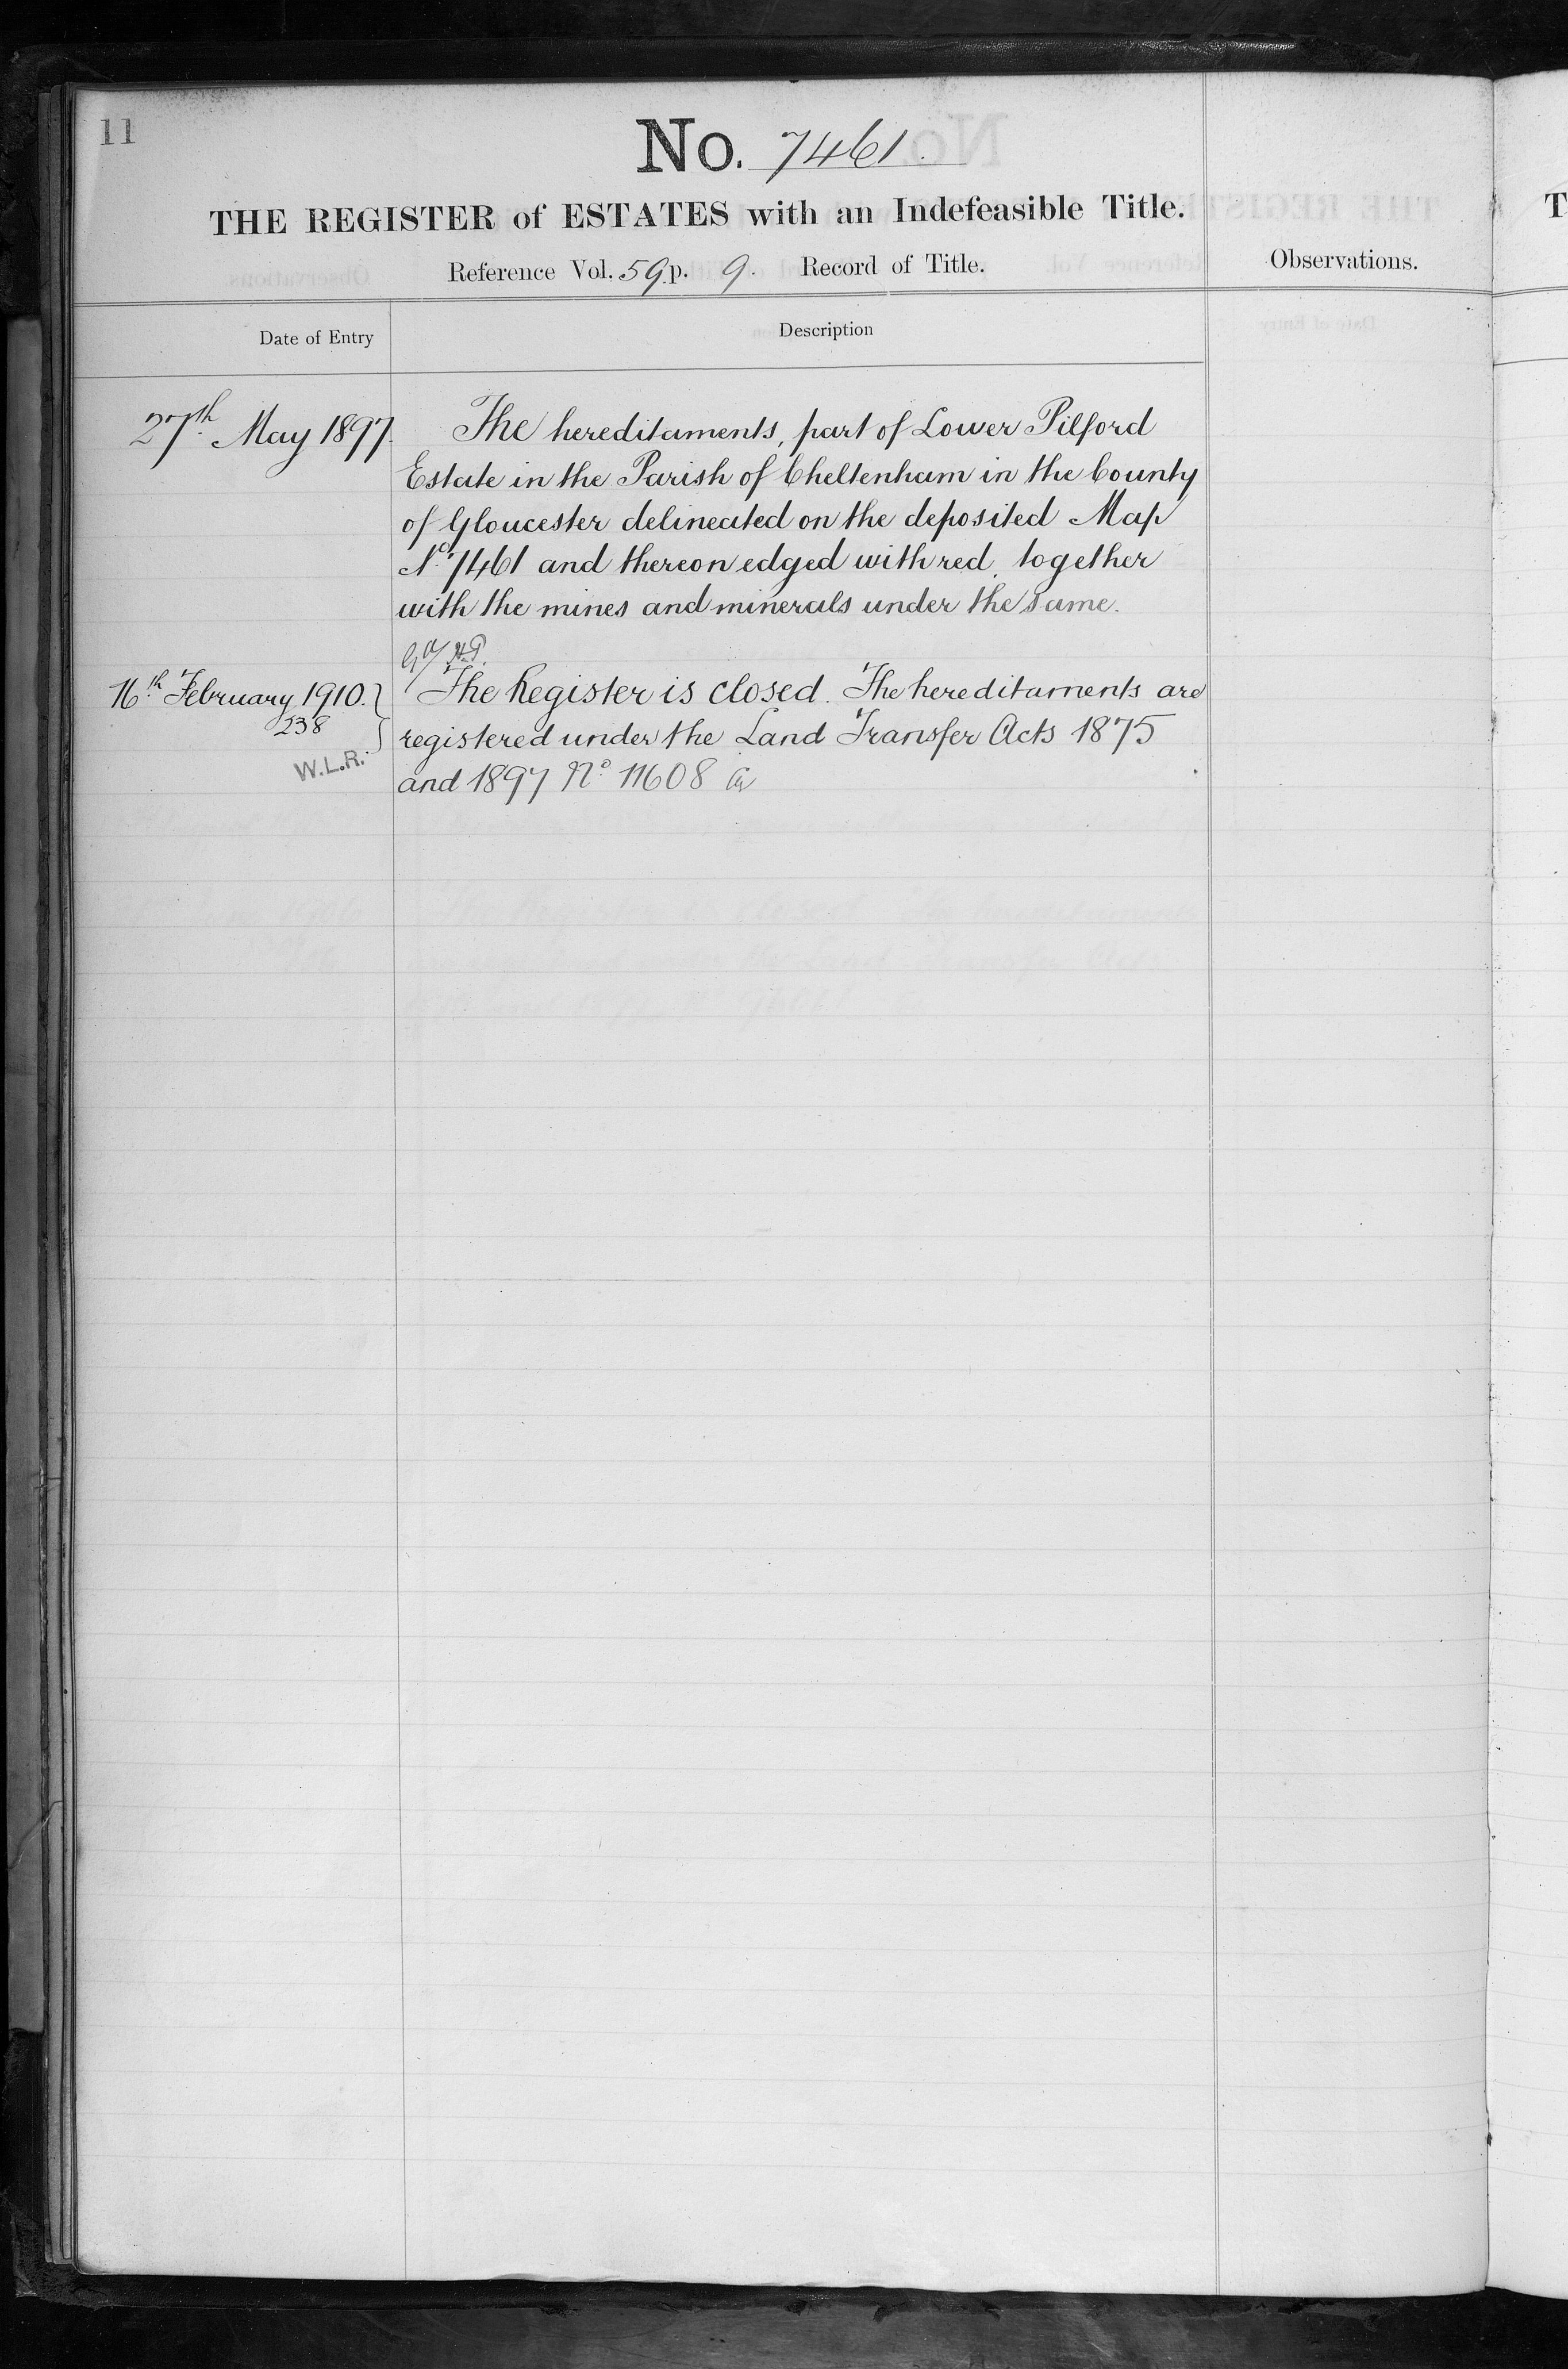 11
No. 7461.
THE REGISTER of ESTATES with an Indefeasible Title.
Reference Vol. 59 p. 9. Record of Title.
Observations.
Date of Entry
Description
27th May 1897.
The hereditaments, part of Lower Pilford
Estate in the Parish of Cheltenham in the County
of Gloucester delineated on the deposited Map
No. 7461 and thereon edged with red together
with the mines and minerals under the same.
16th February 1910.
238
W.L.R.
The Register is closed. The hereditaments are
registered under the Land Transfer Acts 1875
and 1897 No. 11608